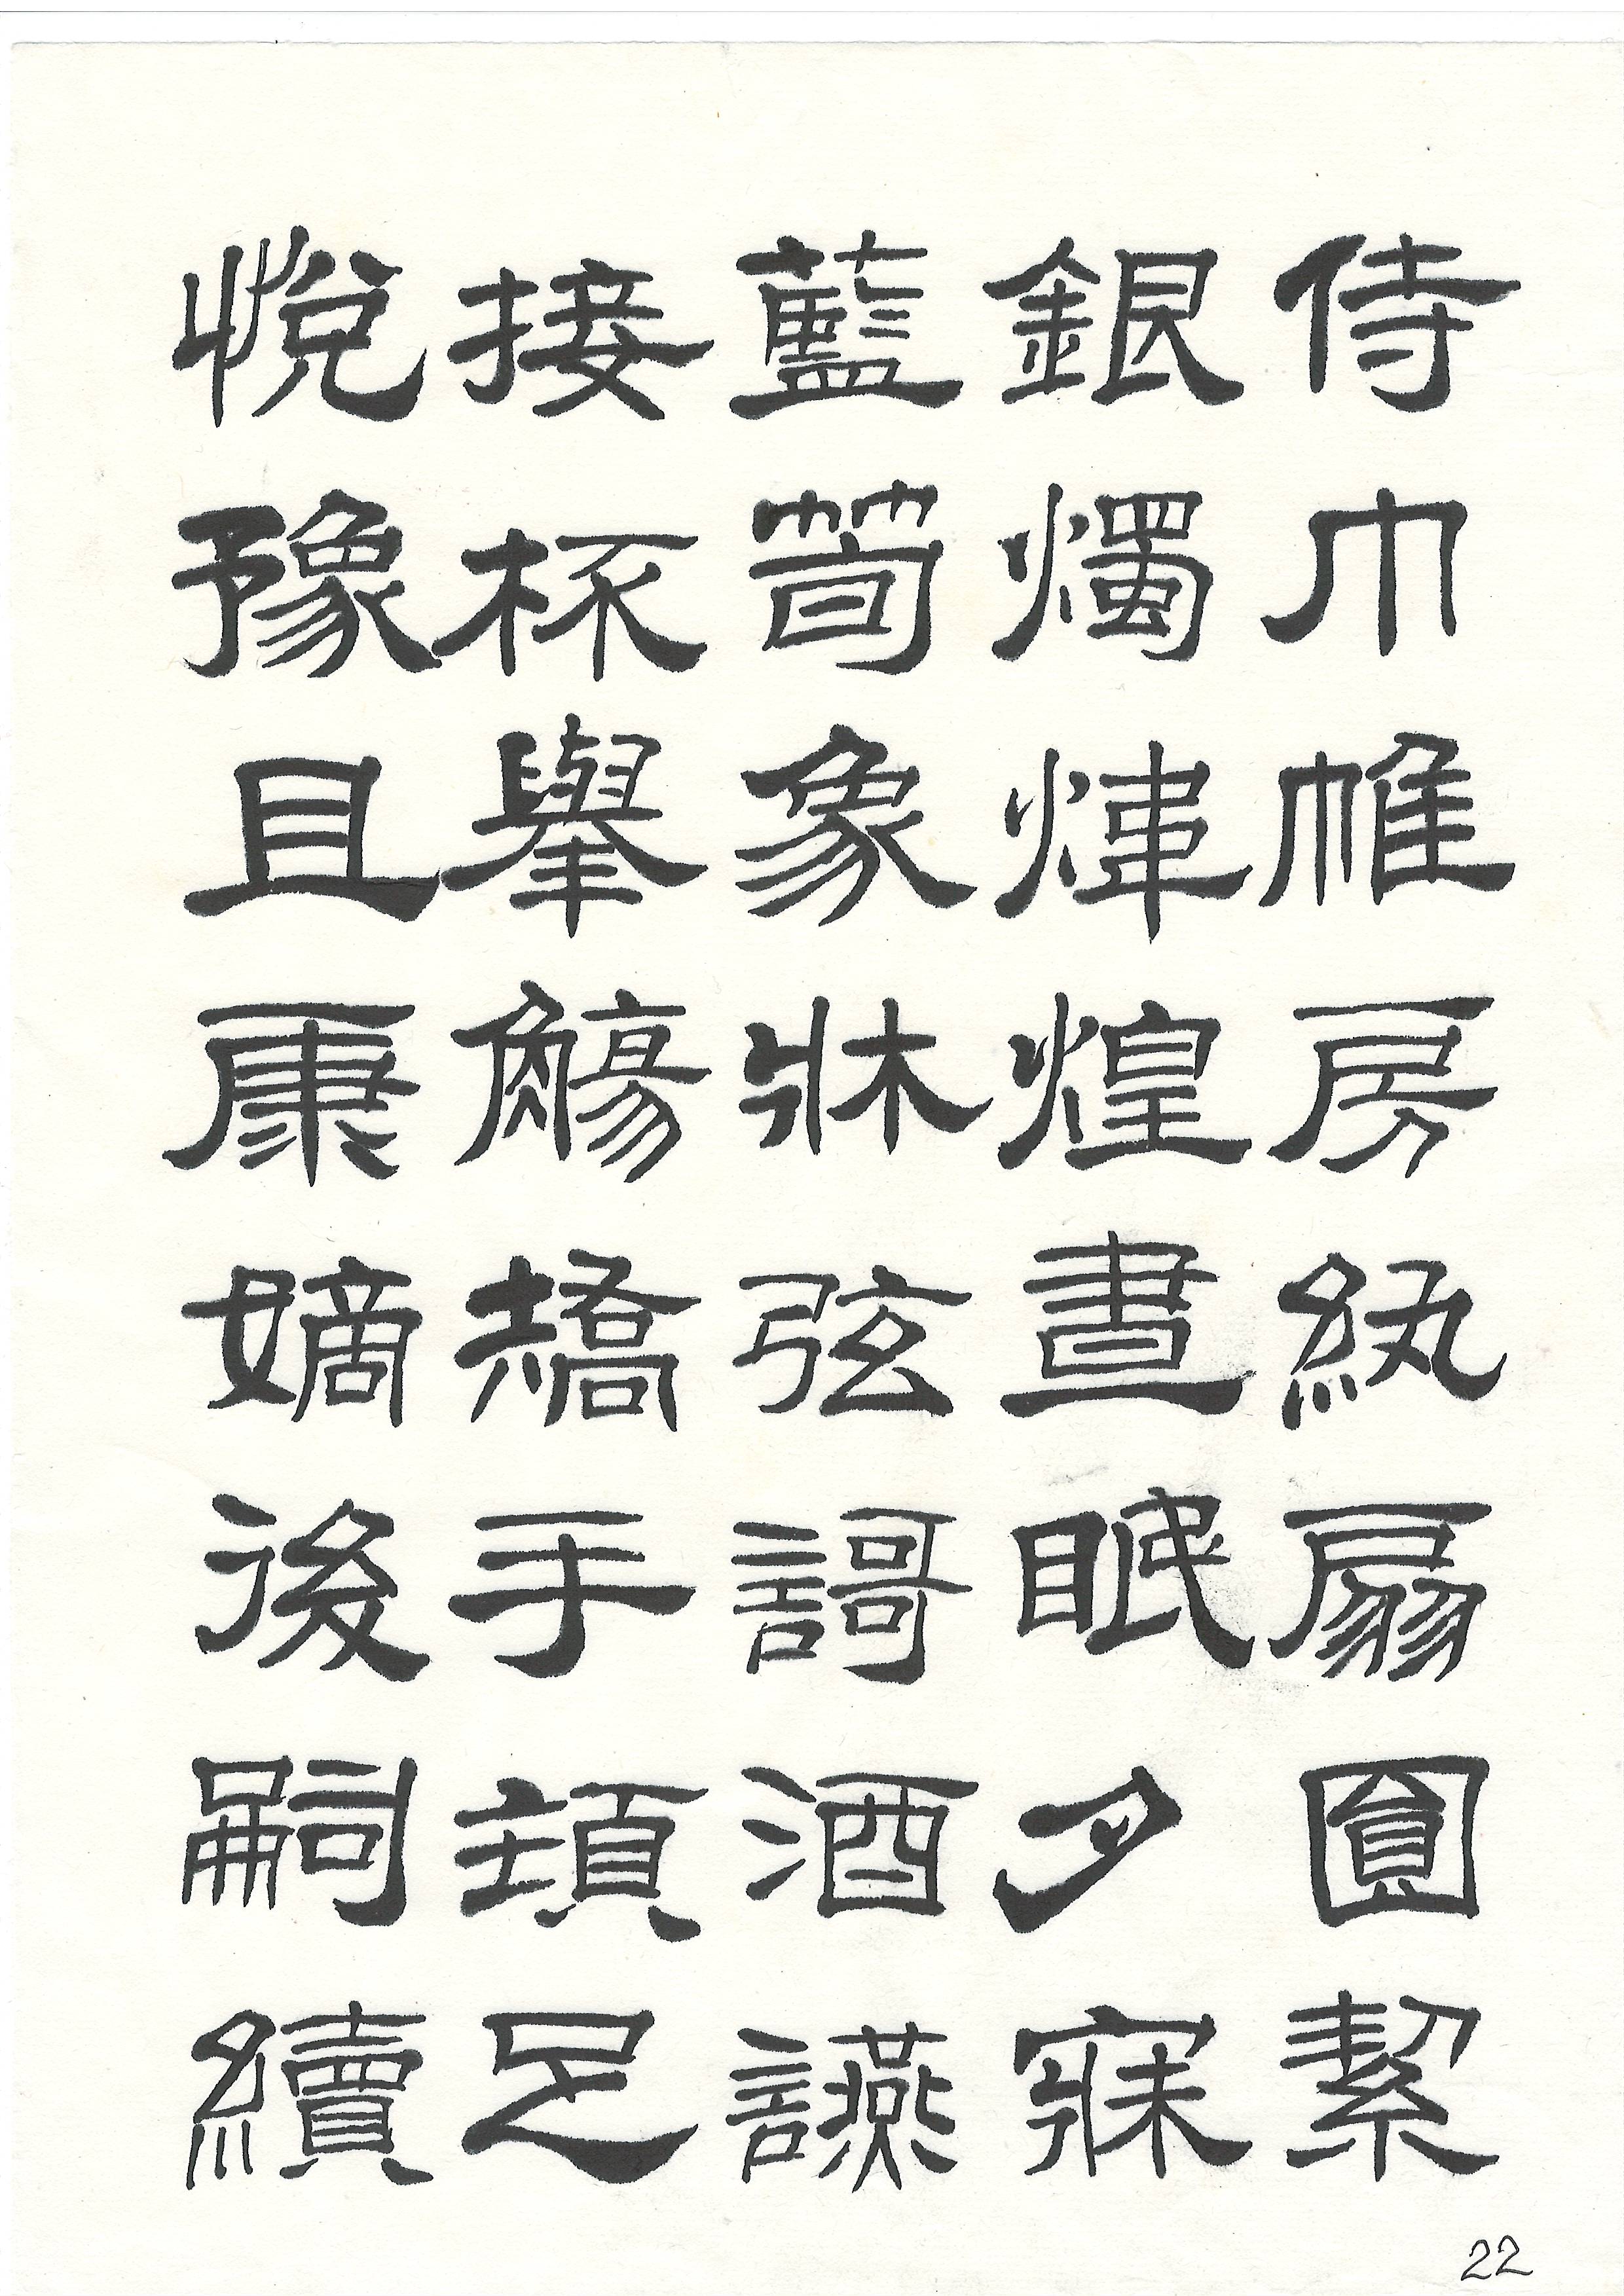 侍巾帷房紈扇圓絜
銀燭煒煌晝眠夕寐
藍筍象牀弦謌酒讌
接杯舉觴矯手頓足
悅豫且康嫡後嗣續
22